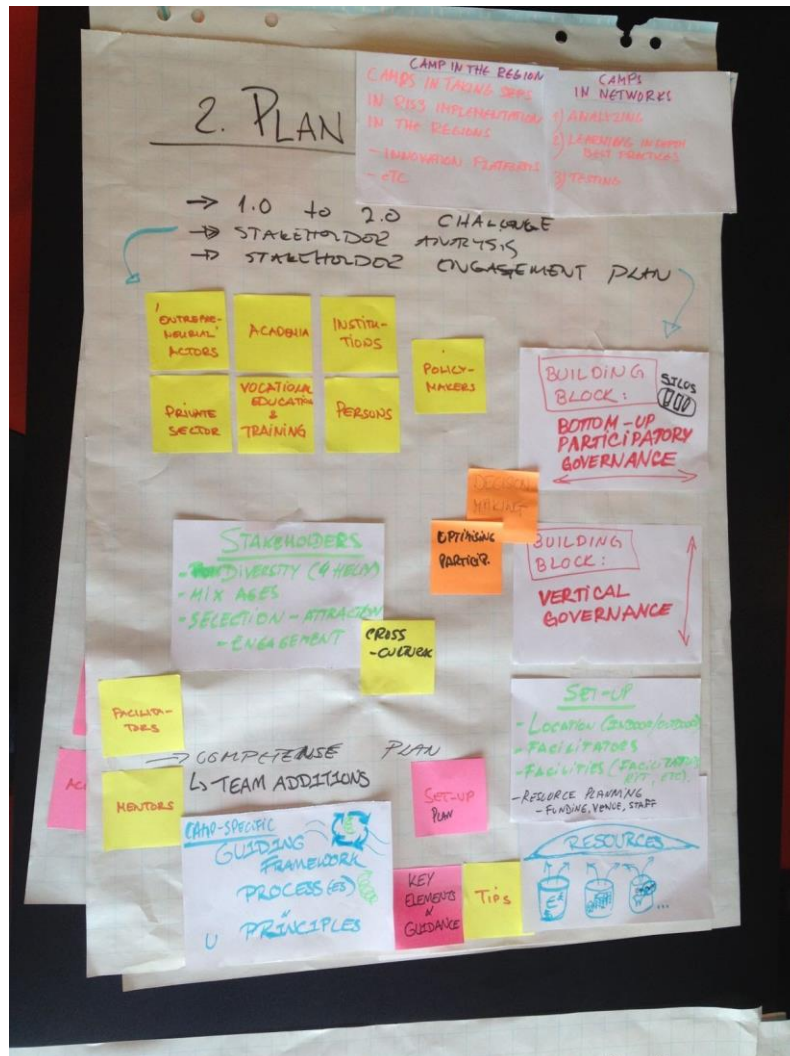 2. PLAN
CAMP IN THE REGION
CAMPS IN TAKING STEPS
IN RIS3 IMPLEMENTATION
IN THE REGIONS
- INNOVATION PLATFORMS
- ETC
CAMPS
IN NETWORKS
1) ANALYZING
2) LEARNING IN DEPTH
BEST PRACTICES
3) TESTING
→ 1.0 to 2.0 CHALLENGE
→ STAKEHOLDER ANALYSIS
→ STAKEHOLDER ENGAGEMENT PLAN
'ENTREPRE-
NEURIAL'
ACTORS
ACADEMIA
INSTITU-
TIONS
POLICY-
MAKERS
PRIVATE
SECTOR
VOCATIONAL
EDUCATION
&
TRAINING
PERSONS
BUILDING
BLOCK:
SILOS
BOTTOM-UP
PARTICIPATORY
GOVERNANCE
DECISION
MAKING
OPTIMISING
PARTICIP.
BUILDING
BLOCK:
VERTICAL
GOVERNANCE
STAKEHOLDERS
- DIVERSITY (4 HELIX)
- MIX AGES
- SELECTION - ATTRACTION
- ENGAGEMENT
CROSS
-CULTURAL
FACILITA-
TORS
MENTORS
→ COMPETENSE PLAN
↳ TEAM ADDITIONS
SET-UP
PLAN
SET-UP
- LOCATION (INDOOR/OUTDOOR)
- FACILITATORS
- FACILITIES (FACILITATOR
KIT, ETC).
- RESOURCE PLANNING
- FUNDING, VENUE, STAFF
CAMP-SPECIFIC
GUIDING
FRAMEWORK
PROCESS(ES)
PRINCIPLES
KEY
ELEMENTS
&
GUIDANCE
TIPS
RESOURCES
€
...